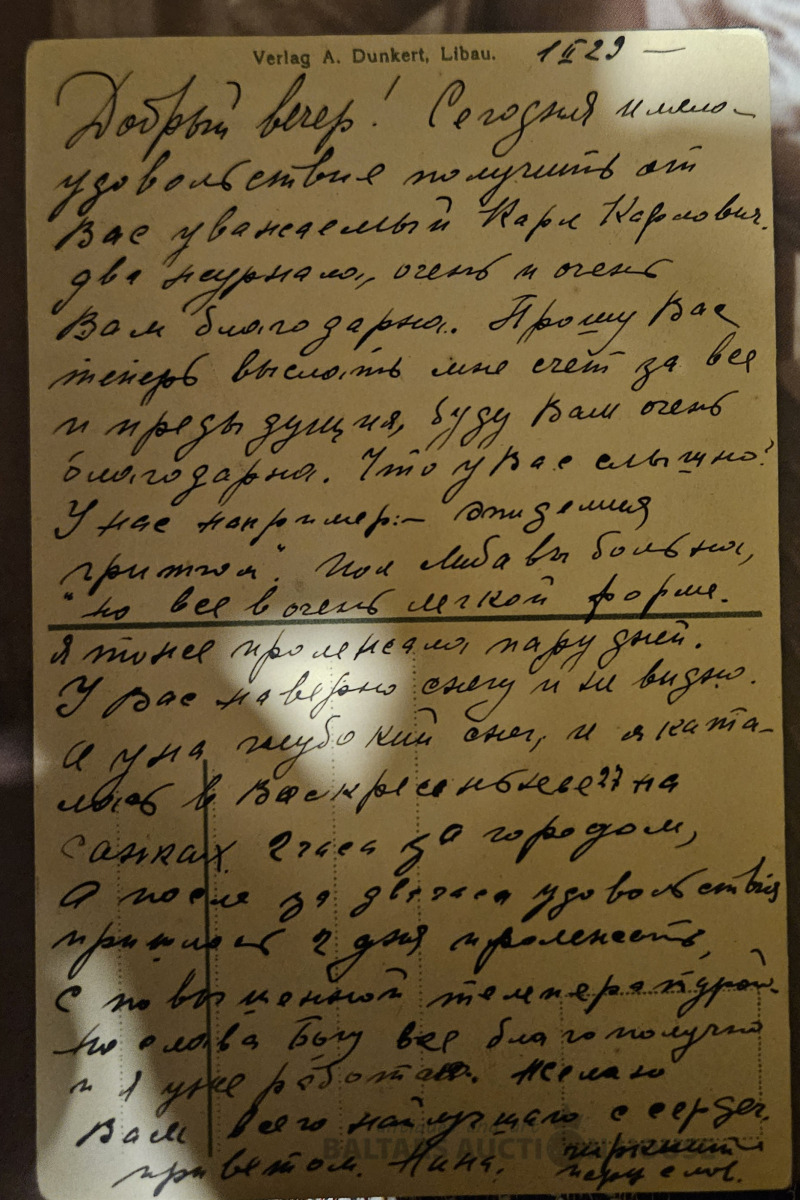 Verlag A. Dunkert, Libau. 1 II 29 —
Добрый вечер! Сегодня имела
удовольствие получить от
Вас уважаемый Карл Карлович.
два журнала, очень и очень
Вам благодарна. Прошу Вас
теперь выслать мне счет за все
и предыдущия, буду Вам очень
благодарна. Что у Вас слышно?
У нас например:— эпидемия
"гриппа". Пол Либавы больна,
но все в очень легкой форме.
Я тоже пролежала пару дней.
У Вас наверно снегу и не видно.
А у на глубокий снег, и я ката-
лась в Воскресенье 27 на
Санках 2 часа за городом,
А после за два часа удовольствия
пришлось 2 дня пролежать,
с повышенной температурой.
Но слава Богу все благополучно
и я уже работаю. Желаю
Вам всего наилучшаго с сердеч.
приветом. Нина. черкните
пару слов.
BALTARS AUCTI